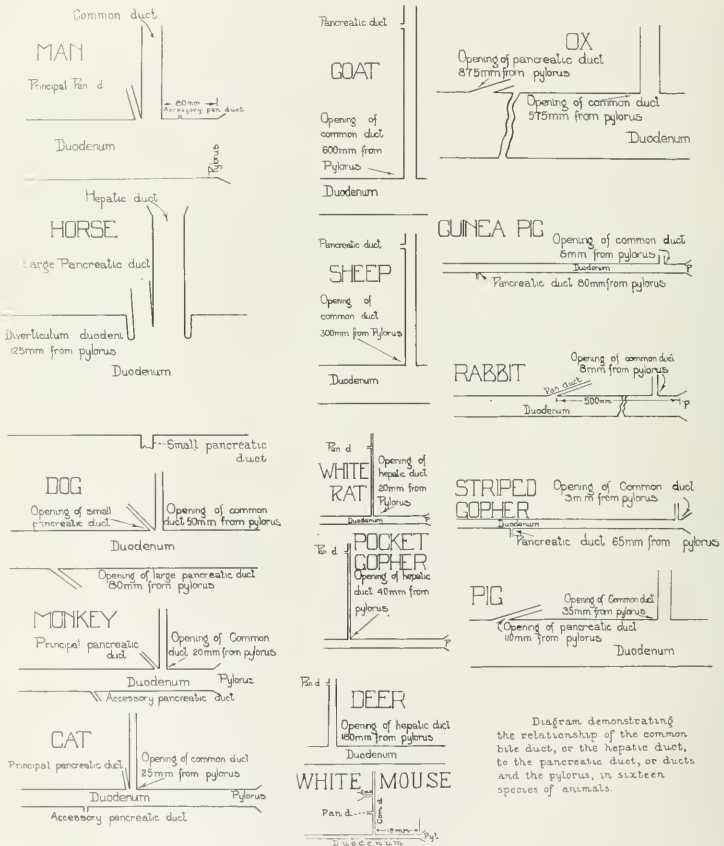 Common duct
MAN
Principal Pan d
80mm
Accessory pan duct
Duodenum
Pylorus
Hepatic duct
HORSE
arge Pancreatic duct
Diverticulum duodeni
125mm from pylorus
Duodenum
Small pancreatic
duct
DOG
Opening of small
pancreatic duct
Opening of common
duct 50mm from pylorus
Duodenum
Opening of large pancreatic duct
80mm from pylorus
MONKEY
Principal pancreatic
duct
Opening of Common
duct 20mm from pylorus
Duodenum
Pylorus
Accessory pancreatic duct
CAT
Principal pancreatic duct
Opening of common duct
25mm from pylorus
Duodenum
Pylorus
Accessory pancreatic duct
Pancreatic duct
GOAT
Opening of
common duct
600mm from
Pylorus
Duodenum
Pancreatic duct
SHEEP
Opening of
common duct
300mm from Pylorus
Duodenum
Pan d
WHITE
RAT
Opening of
hepatic duct
20mm from
Pylorus
Duodenum
P
Pan d
POCKET
GOPHER
Opening of hepatic
duct 40mm from
pylorus
P
Pan d
DEER
Opening of hepatic duct
180mm from pylorus
Duodenum
WHITE MOUSE
Pan d
Com d
Pyl.
Duodenum
OX
Opening of pancreatic duct
875mm from pylorus
Opening of common duct
575mm from pylorus
Duodenum
GUINEA PIG
Opening of common duct
8mm from pylorus
Duodenum
P
Pancreatic duct 80mm from pylorus
RABBIT
Opening of common duct
8mm from pylorus
Pan duct
500mm
P
Duodenum
STRIPED
GOPHER
Opening of Common duct
3mm from pylorus
Duodenum
Pancreatic duct 65mm from pylorus
PIG
Opening of Common duct
35mm from pylorus
Opening of pancreatic duct
110mm from pylorus
Duodenum
Diagram demonstrating
the relationship of the common
bile duct, or the hepatic duct,
to the pancreatic duct, or ducts
and the pylorus, in sixteen
species of animals.